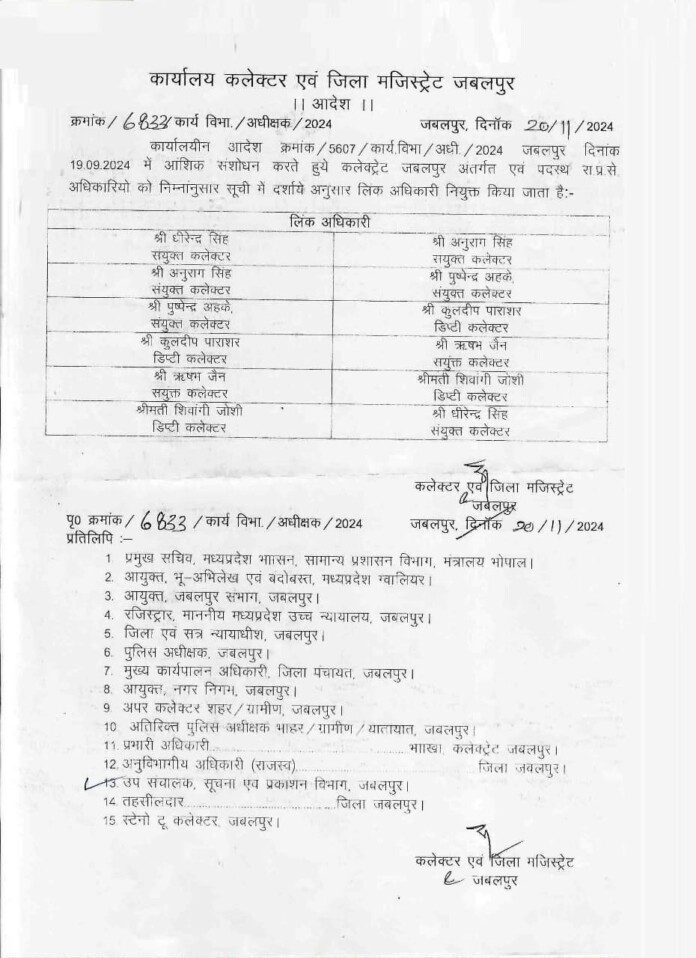 कार्यालय कलेक्टर एवं जिला मजिस्ट्रेट जबलपुर
।। आदेश ।।
क्रमांक / 6833 / कार्य विभा. / अधीक्षक / 2024 जबलपुर, दिनॉक 20/11/2024
कार्यालयीन आदेश क्रमांक / 5607 / कार्य.विभा / अधी. / 2024 जबलपुर दिनांक
19.09.2024 में आंशिक संशोधन करते हुये कलेक्ट्रेट जबलपुर अंतर्गत एवं पदस्थ रा.प्र.से.
अधिकारियो को निम्नांनुसार सूची में दर्शाये अनुसार लिंक अधिकारी नियुक्त किया जाता है:-
लिंक अधिकारी
श्री धीरेन्द्र सिंह श्री अनुराग सिंह
सयुक्त कलेक्टर सयुक्त कलेक्टर
श्री अनुराग सिंह श्री पुष्पेन्द्र अहके,
संयुक्त कलेक्टर संयुक्त कलेक्टर
श्री पुष्पेन्द्र अहके, श्री कुलदीप पाराशर
संयुक्त कलेक्टर डिप्टी कलेक्टर
श्री कुलदीप पाराशर श्री ऋषभ जैन
डिप्टी कलेक्टर सयुक्त कलेक्टर
श्री ऋषभ जैन श्रीमती शिवांगी जोशी
सयुक्त कलेक्टर डिप्टी कलेक्टर
श्रीमती शिवांगी जोशी श्री धीरेन्द्र सिंह
डिप्टी कलेक्टर संयुक्त कलेक्टर
कलेक्टर एवं जिला मजिस्ट्रेट
जबलपुर
पृ0 क्रमांक / 6833 / कार्य विभा. / अधीक्षक / 2024 जबलपुर, दिनॉक 20/11/2024
प्रतिलिपि :-
1. प्रमुख सचिव, मध्यप्रदेश भाासन, सामान्य प्रशासन विभाग, मंत्रालय भोपाल।
2. आयुक्त, भू-अभिलेख एवं बदोबस्त, मध्यप्रदेश ग्वालियर।
3. आयुक्त, जबलपुर संभाग, जबलपुर।
4. रजिस्ट्रार, माननीय मध्यप्रदेश उच्च न्यायालय, जबलपुर।
5. जिला एवं सत्र न्यायाधीश, जबलपुर।
6. पुलिस अधीक्षक, जबलपुर।
7. मुख्य कार्यपालन अधिकारी, जिला पंचायत, जबलपुर।
8. आयुक्त, नगर निगम, जबलपुर।
9. अपर कलेक्टर शहर / ग्रामीण, जबलपुर।
10. अतिरिक्त पुलिस अधीक्षक भाहर / ग्रामीण / यातायात, जबलपुर।
11. प्रभारी अधिकारी.......................................भााखा, कलेक्ट्रेट जबलपुर।
12. अनुविभागीय अधिकारी (राजस्व)...................................जिला जबलपुर।
13. उप संचालक, सूचना एवं प्रकाशन विभाग, जबलपुर।
14. तहसीलदार...............................जिला जबलपुर।
15. स्टेनो टू कलेक्टर, जबलपुर।
कलेक्टर एवं जिला मजिस्ट्रेट
जबलपुर